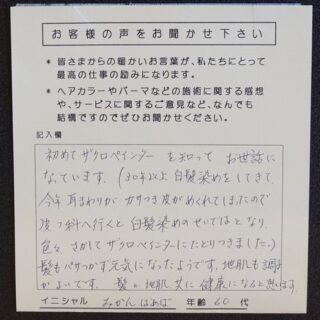 お客様の声をお聞かせ下さい
* 皆さまからの暖かいお言葉が、私たちにとって
最高の仕事の励みになります。
* ヘアカラーやパーマなどの施術に関する感想
や、サービスに関するご意見など、なんでも
結構ですのでぜひお聞かせください。
記入欄
初めてザクロペインターを知って お世話に
なっています。(30年以上白髪染めをしてきて、
今年 耳まわりが カサつき皮がめくれてしまったので
皮フ科へ行くと 白髪染めのせいではとなり、
色々 さがしてザクロペインターにたどりつきました。)
髪もパサつかず元気になったようです。地肌も調子
がよいです。 髪と地肌共に 健康になると思います。
イニシャル みかんばあば 年齢 60 代